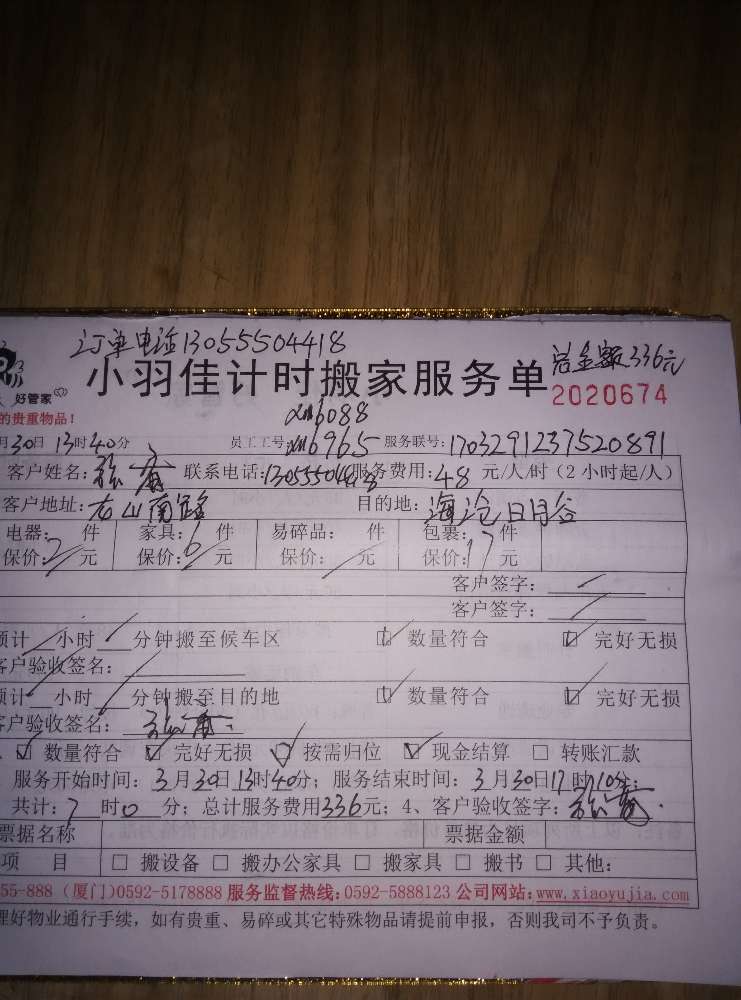 订单电话13055504418
总金额336元
小羽佳计时搬家服务单
2020674
好管家
的贵重物品!
xm6088
月30日 13时40分 员工工号:xm6965 服务联号:1703291237520891
客户姓名: 联系电话:13055504418 服务费用:48 元/人/时(2小时起/人)
客户地址: 目的地:海沧日月谷
电器: 件 家具:6 件 易碎品: 件 包裹: 件
保价:2 元 保价: 元 保价: 元 保价:17 元
客户签字:
客户签字:
预计 小时 分钟搬至候车区 数量符合 完好无损
客户验收签名:
预计 小时 分钟搬至目的地 数量符合 完好无损
客户验收签名:
数量符合 完好无损 按需归位 现金结算 转账汇款
服务开始时间:3月30日13时40分;服务结束时间:3月30日17时10分;
共计:7时0分;总计服务费用336元;4、客户验收签字:
票据名称 票据金额
项 目 搬设备 搬办公家具 搬家具 搬书 其他:
55-888(厦门)0592-5178888 服务监督热线:0592-5888123 公司网站:www.xiaoyujia.com
理好物业通行手续,如有贵重、易碎或其它特殊物品请提前申报,否则我司不予负责。